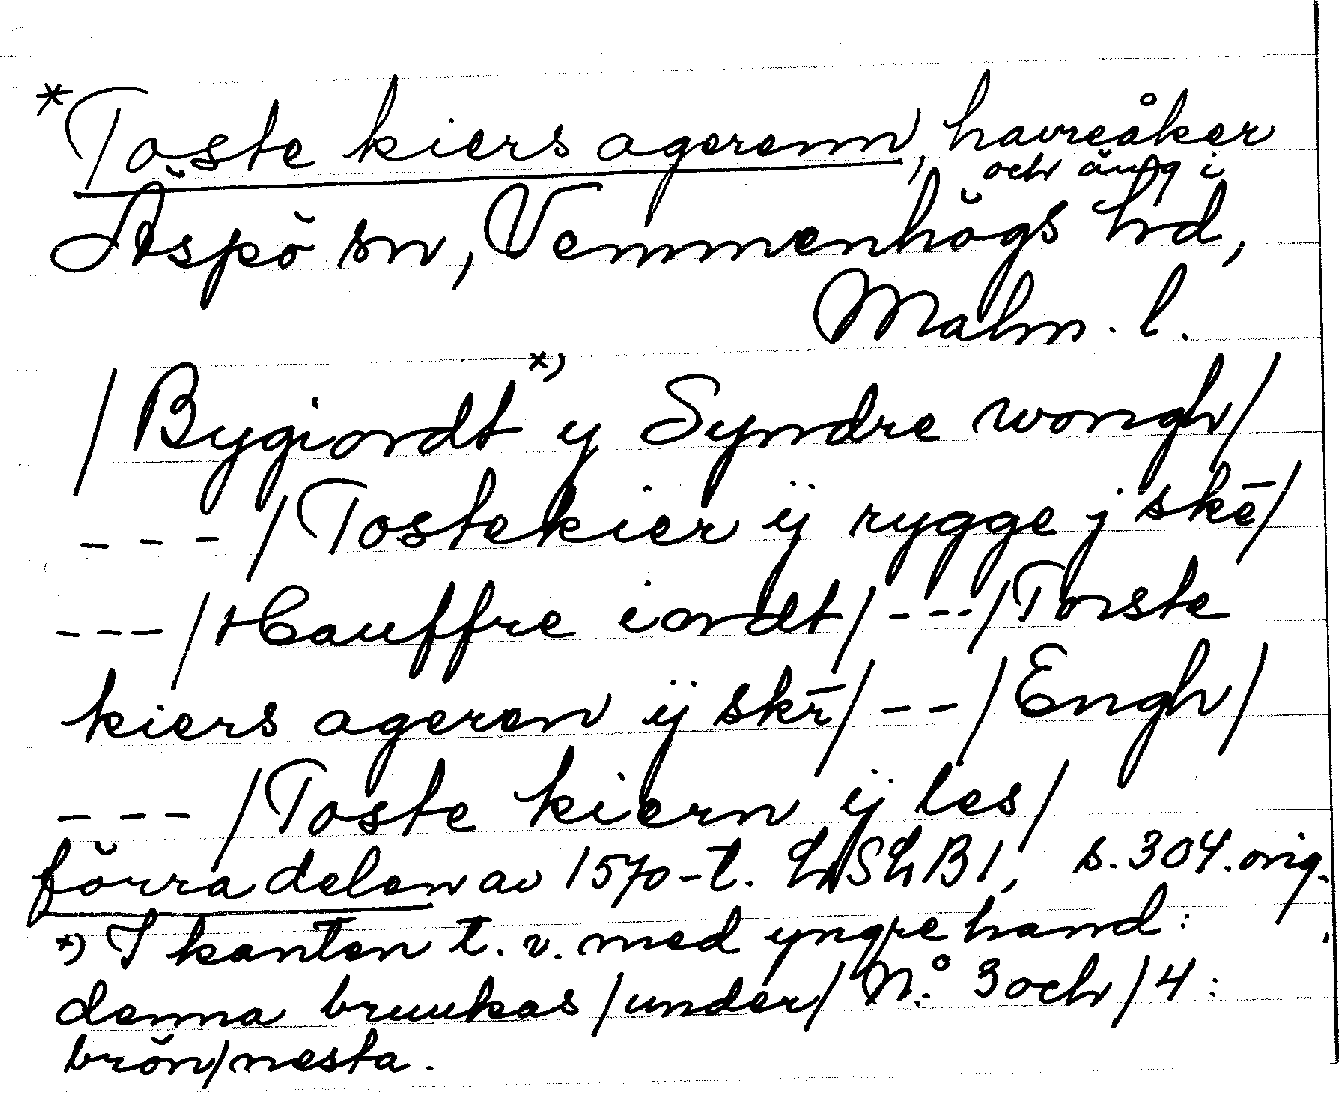 *Toste kiers agerenn, havreåker
och äng i
Äspö sn, Vemmenhögs hd,
Malm. l.
/Bygiordt *) y Syndre wongh/
--- /Tostekier ÿ rygge j skē/
--- /Hauffre iordt/ --- /Torste
kiers ageren ÿ skr̄/ -- /Engh/
--- /Toste kiern ÿ les/
förra delen av 1570-t. LSLB1, s. 304. orig.
*) I kanten t. v. med yngre hand:
denna bruukas /under/ N:o 3 och /4:
brön/nesta.